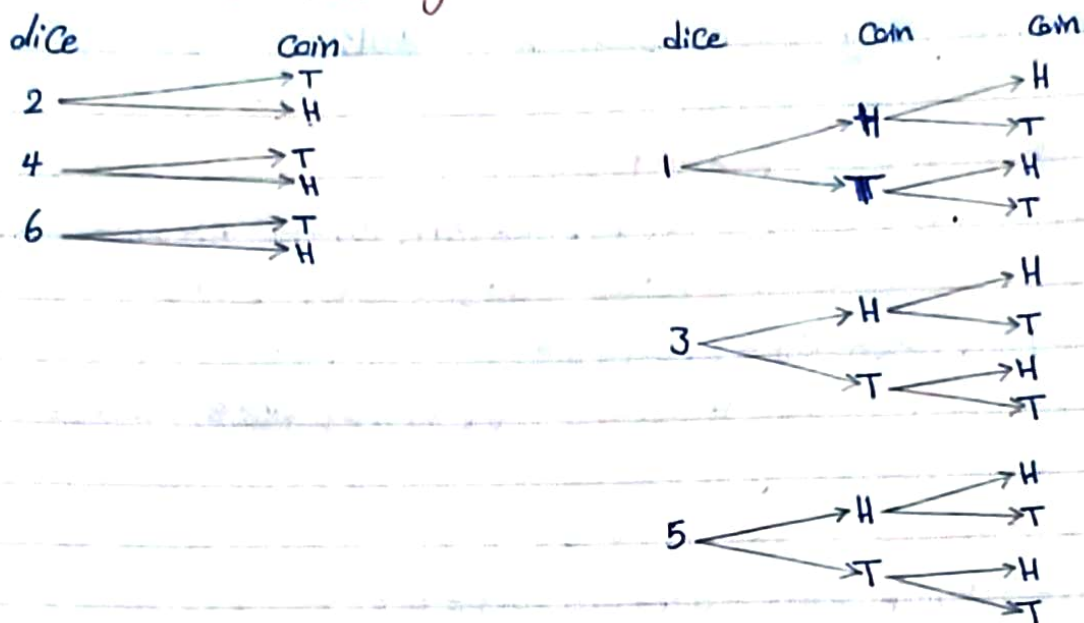 dice coin
2 T
H
4 T
H
6 T
H
dice Coin Coin
1 H H
T
T H
T
3 H H
T
T H
T
5 H H
T
T H
T